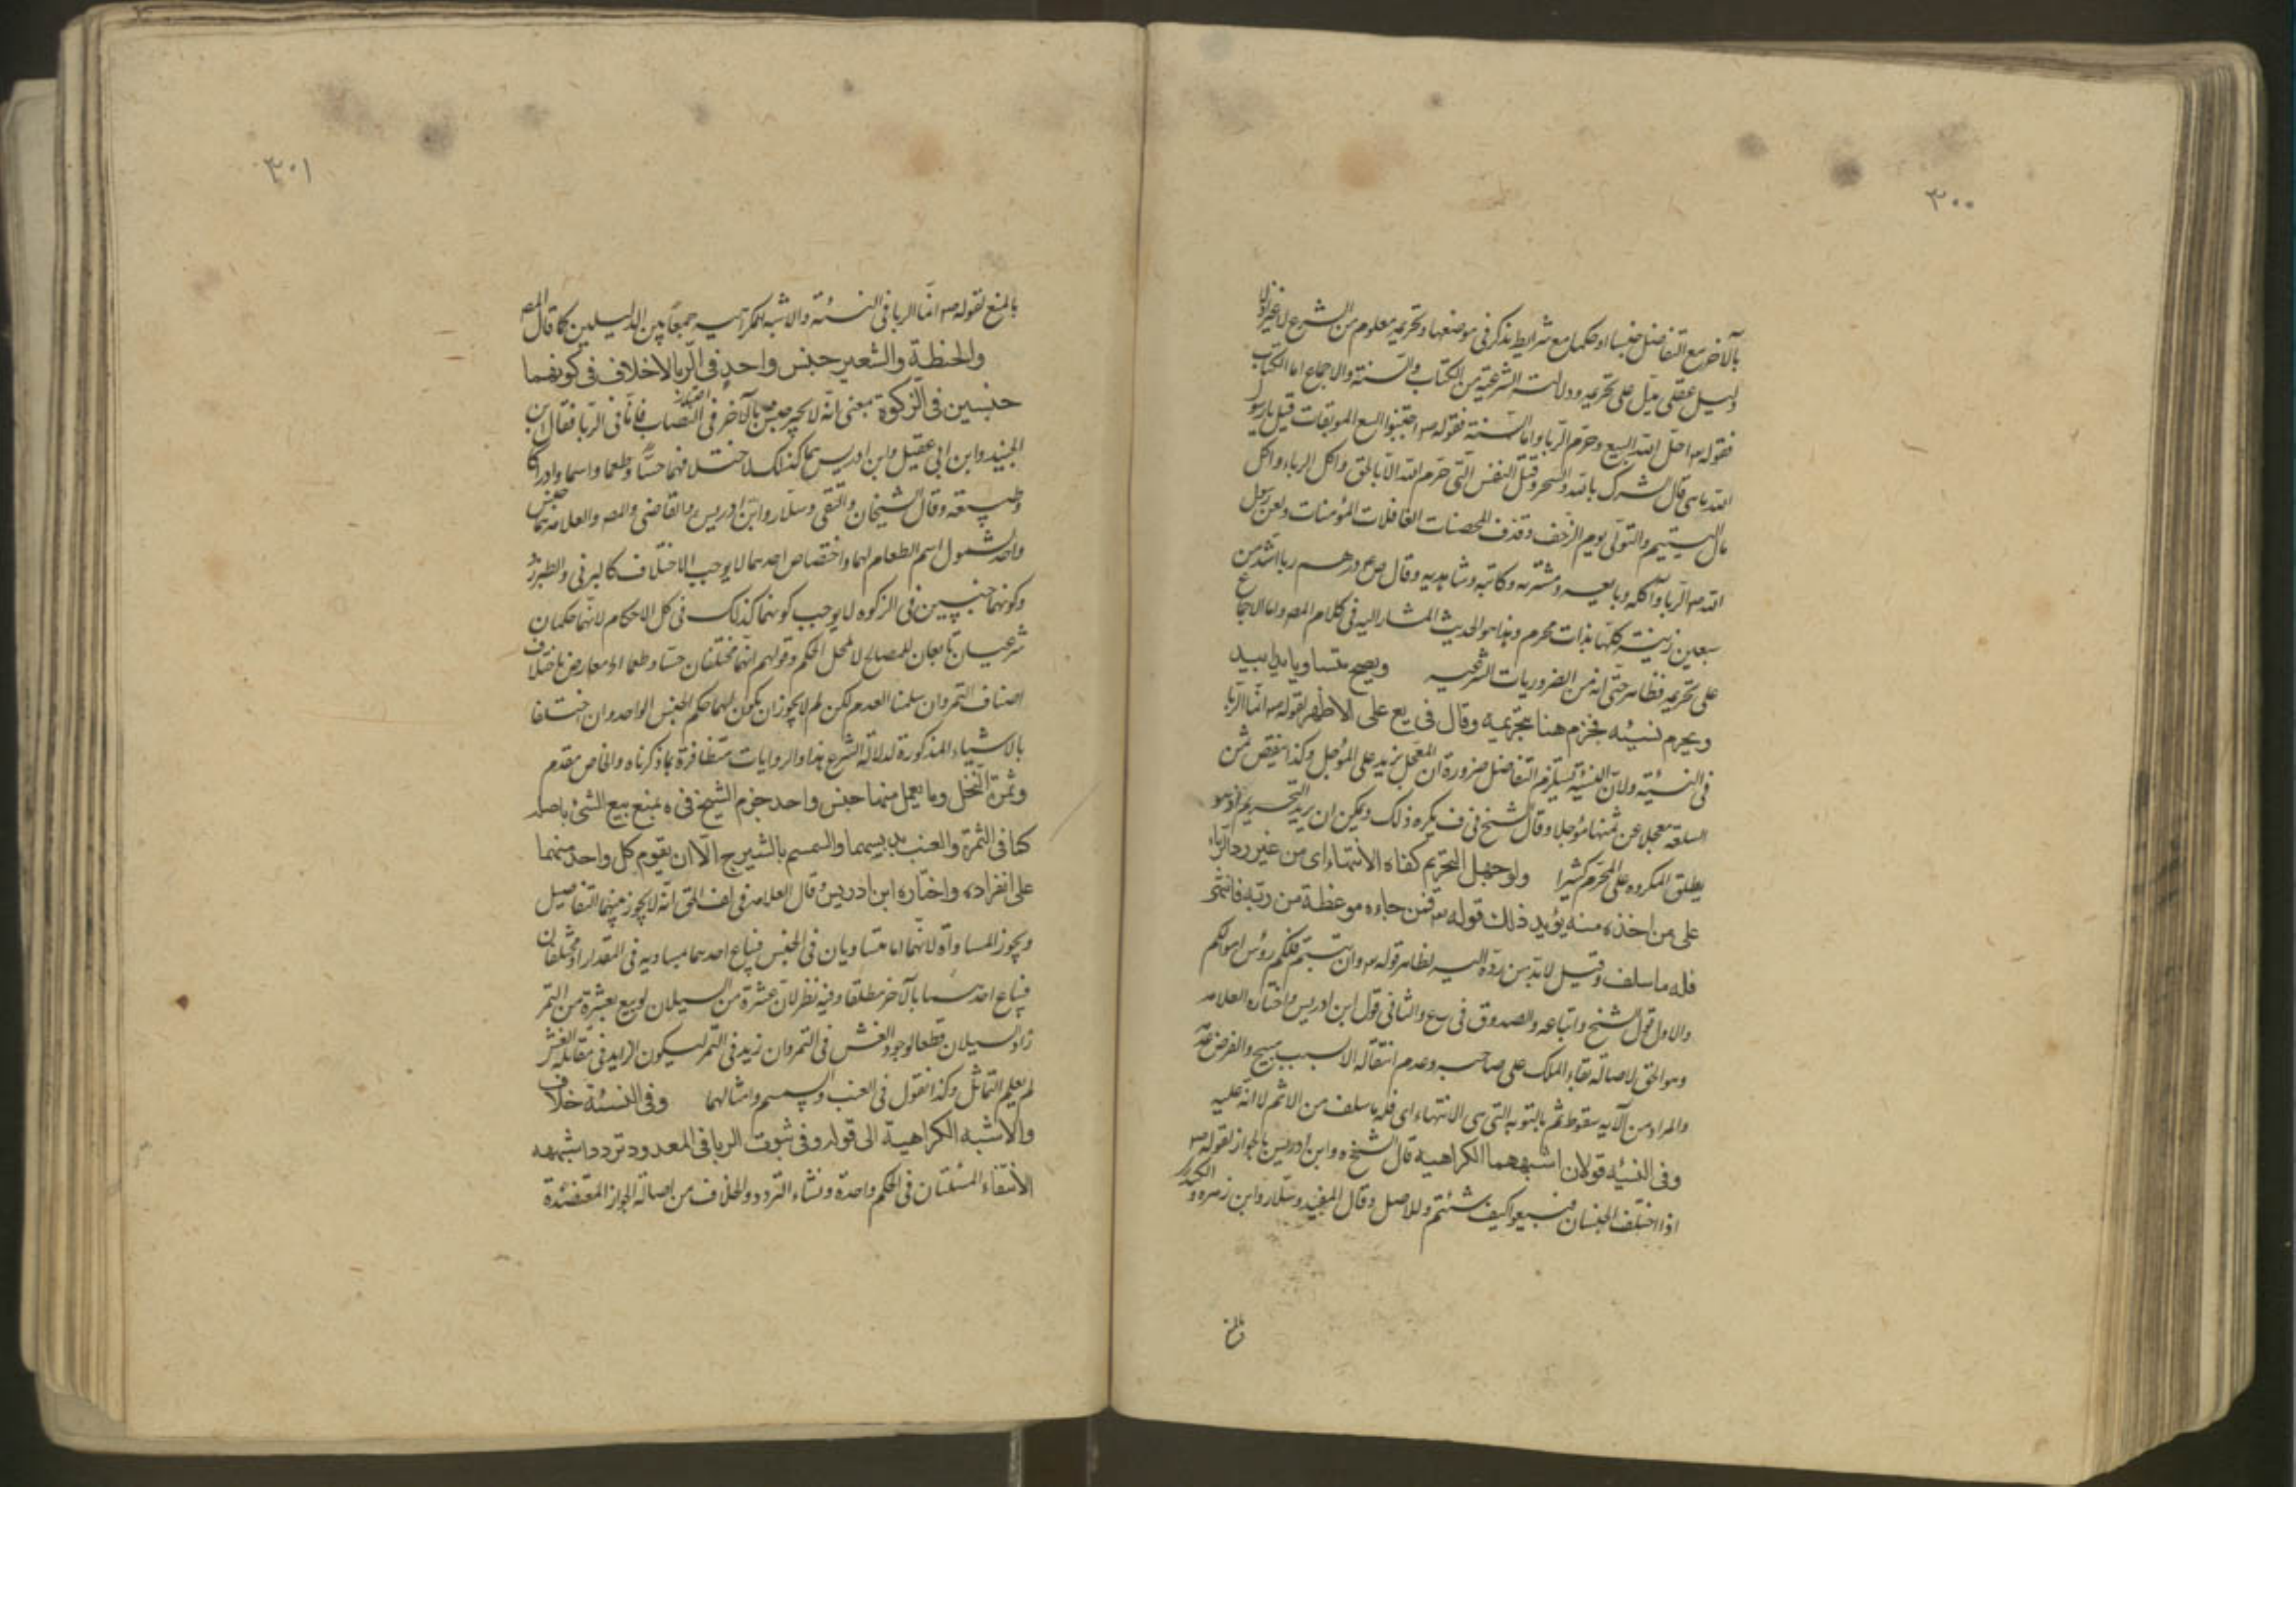 ٣٠٠
بالآخر مع التفاضل جنسا او حكما مع شرايط تذكر فى موضعها وتحريمه معلوم من الشرع لا غير اذ لا
دليل عقلى يدل على تحريمه ودلالته الشرعية من الكتاب والسنة والاجماع اما الكتاب
فقوله تع احل الله البيع وحرم الربا واما السنة فقوله ص اجتنبوا السبع الموبقات قيل يا رسول
الله ما هى قال الشرك بالله والسحر وقتل النفس التى حرم الله الا بالحق واكل الرباء واكل
مال اليتيم والتولى يوم الزحف وقذف المحصنات الغافلات المؤمنات ولعن رسول
الله ص الربا وآكله وبايعه ومشتريه وكاتبه وشاهديه وقال ص درهم ربا اشد من
سبعين زنية كلها بذات محرم وهذا هو الحديث المشار اليه فى كلام المص واما الاجماع
على تحريمه فظاهر حتى انه من الضروريات الشرعيه ويصح متساويا يدا بيد
ويحرم نسيئه فجزم هنا بتحريمه وقال فى يع على الاظهر لقوله ص انما الربا
فى النسيئة ولان النسيئة يستلزم التفاضل ضرورة ان المعجل يزيد على المؤجل وكذا ينقص ثمن
السلعة معجلا عن ثمنها مؤجلا وقال الشيخ فى ف يكره ذلك ويمكن ان يريد التحريم اذ هو
يطلق المكروه على المحرم كثيرا ولو جهل التحريم كفاه الانتهاء اى من غير رد الرباء
على من اخذه منه يؤيد ذلك قوله تع فمن جاءه موعظة من ربه فانتهى
فله ما سلف وقيل لا بد من رده اليه لظاهر قوله تع وان تبتم فلكم رؤس اموالكم
والاول قول الشيخ واتباعه والصدوق فى يع والثانى قول ابن ادريس واختاره العلامه
وهو الحق لاصالة بقاء الملك على صاحبه وعدم انتقاله الا بسبب مبيح والفرض عدمه
والمراد من الآيه سقوط الاثم بالتوبه التى هى الانتهاء اى فله ما سلف من الاثم لا انه عليه
وفى النسيه قولان اشبههما الكراهية قال الشيخ ره وابن ادريس بالجواز لقوله ص
اذا اختلف الجنسان فبيعوا كيف شئتم وللاصل وقال المفيد وسلار وابن زهره و
بالمنع
٣٠١
بالمنع لقوله ص انما الربا فى النسئة والاشبه الكراهيه جمعا بين الدليلين كما قال المص
والحنطة والشعير جنس واحد فى الربا لا خلاف فى كونهما
جنسين فى الزكوة بمعنى انه لا يجبر جنس بالآخر فى النصاب فاما فى الربا فقال ابن
الجنيد وابن ابى عقيل وابن ادريس هما كذلك لاختلافهما حسا وطعما واسما وادراكا
وطبيعة وقال الشيخان والتقى وسلار وابن ادريس والقاضى والمص والعلامه هما جنس
واحد لشمول اسم الطعام لهما واختصاص احدهما لا يوجب الاختلاف كالبرنى والطبرزد
وكونهما جنسين فى الزكوه لا يوجب كونهما كذلك فى كل الاحكام لانهما حكمان
شرعيان تابعان للمصالح لا لمحل الحكم وقولهم انهما مختلفان حسا وطعما اه معارض باختلاف
اصناف التمر وان سلمنا العدم لكن لم لا يجوز ان يكون لهما حكم الجنس الواحد وان اختلفا
بالاشياء المذكورة لدلالة الشرع هذا والروايات متظافرة بما ذكرناه والخاص مقدم
وثمرة النخل وما يعمل منها جنس واحد جزم الشيخ فى ه بمنع بيع الشئ باصله
كما فى الثمرة والعنب بدبسهما والسمسم بالشيرج الا ان يقوم كل واحد منهما
على انفراده واختاره ابن ادريس وقال العلامه فى لف الحق انه لا يجوز بينهما التفاضل
ويجوز المساواة لانهما اما متساويان فى الجنس فيباع احدهما بمساويه فى المقدار او مختلفان
فيباع احدهما بالآخر مطلقا وفيه نظر لان عشرة من السيلان لو بيع بعشرة من التمر
زاد السيلان قطعا لوجود الغش فى التمر وان زيد فى التمر ليكون الزايد فى مقابلة الغش
لم يعلم التماثل وكذا نقول فى العنب والسمسم وامثالهما وفى النسئة خلاف
والاشبه الكراهية الى قوله وفى ثبوت الربا فى المعدود تردد اشبهه
الانتفاء المسئلتان فى الحكم واحدة ونشاء التردد والخلاف من اصالة الجواز المعتضدة